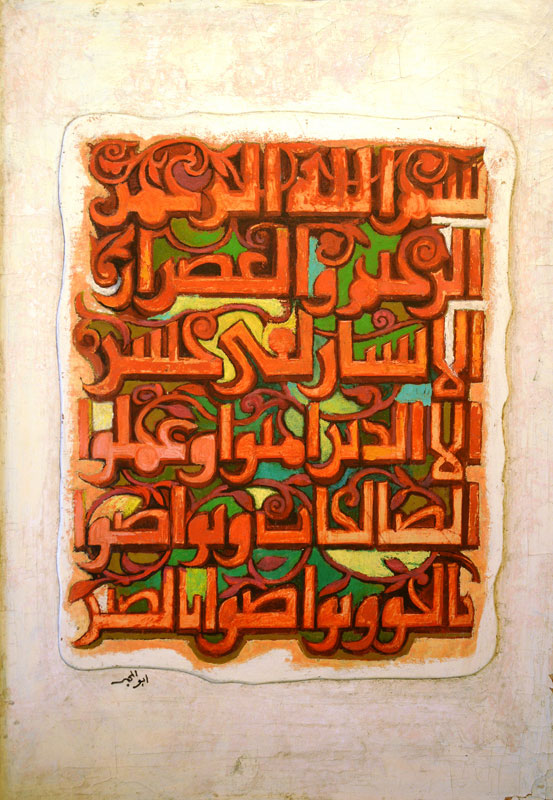 بسم الله الرحمن
الرحيم والعصر ان
الانسان لفى خسر
الا الذين امنوا وعملوا
الصالحات وتواصوا
بالحق وتواصوا بالصبر